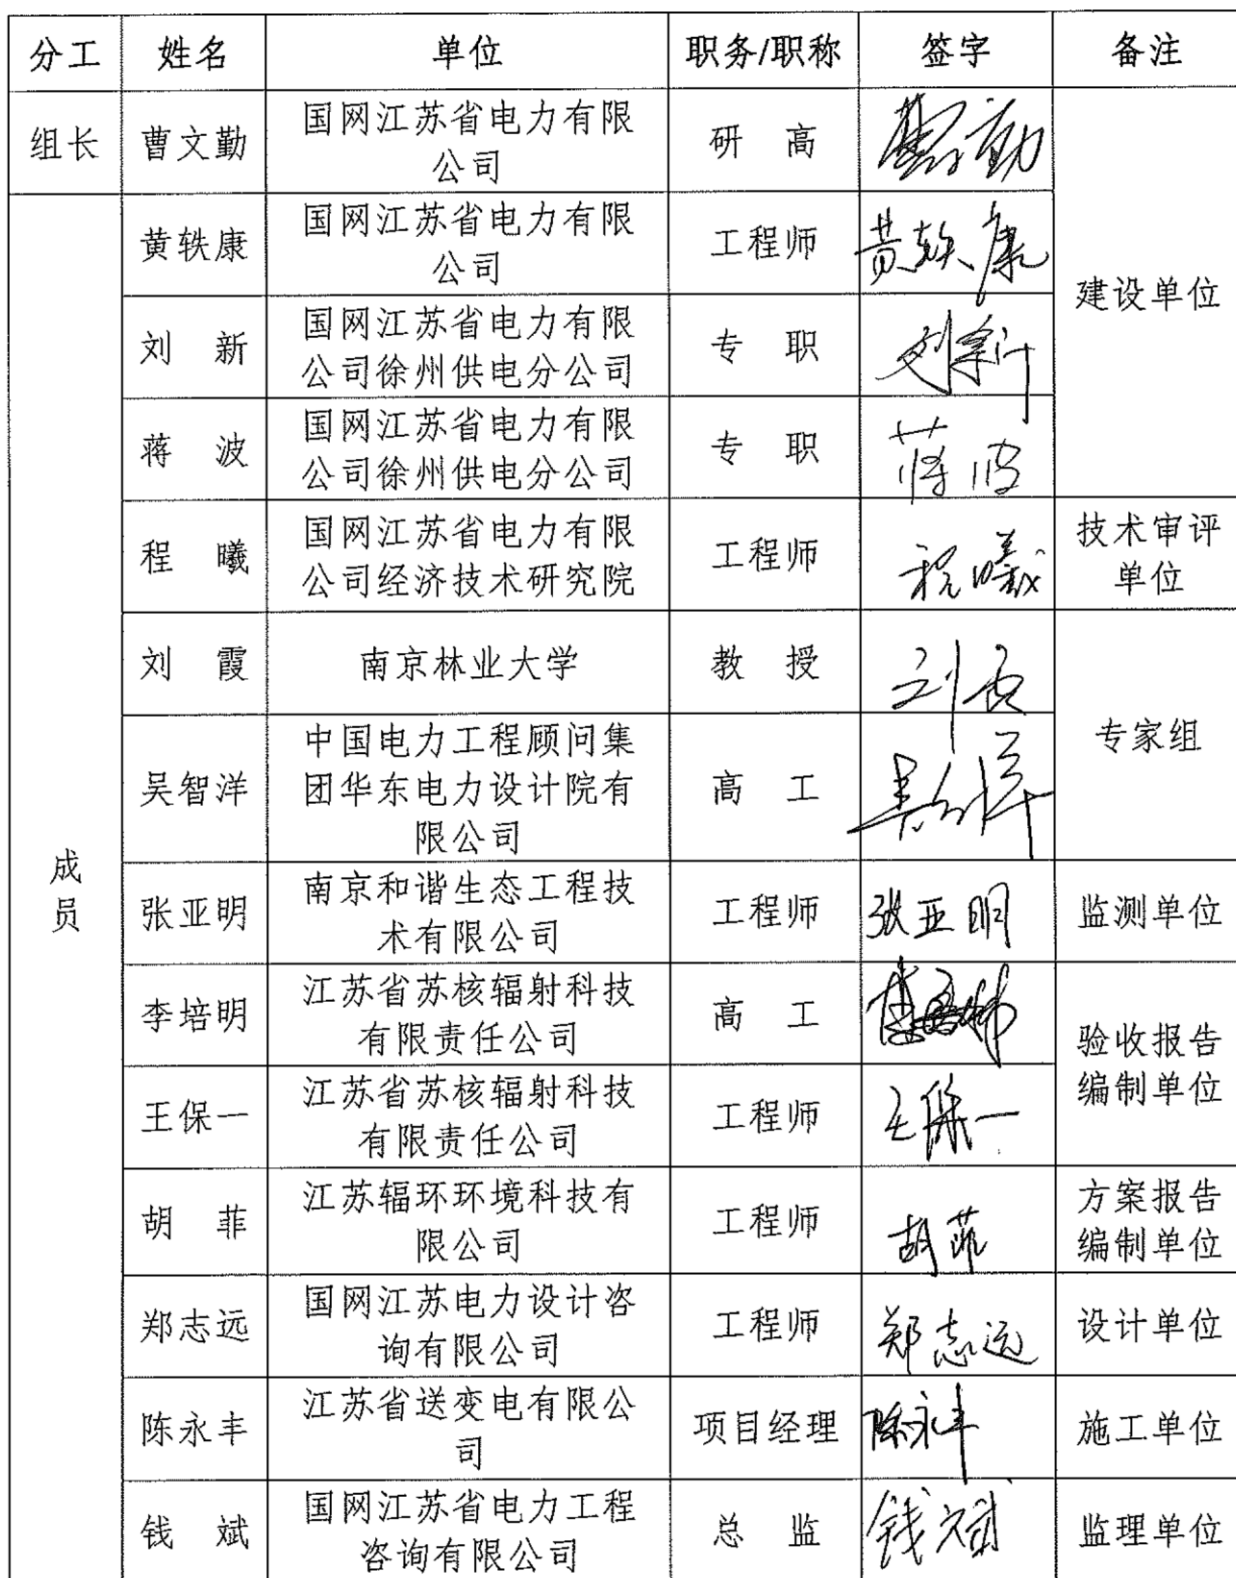 分工 姓名 单位 职务/职称 签字 备注
组长 曹文勤 国网江苏省电力有限
公司 研 高 曹文勤
黄轶康 国网江苏省电力有限
公司 工程师 黄轶康
建设单位
刘 新 国网江苏省电力有限
公司徐州供电分公司 专 职 刘新
蒋 波 国网江苏省电力有限
公司徐州供电分公司 专 职 蒋波
程 曦 国网江苏省电力有限
公司经济技术研究院 工程师 程曦 技术审评
单位
刘 霞 南京林业大学 教 授 刘霞
专家组
吴智洋 中国电力工程顾问集
团华东电力设计院有
限公司 高 工
成
员
张亚明 南京和谐生态工程技
术有限公司 工程师 张亚明 监测单位
李培明 江苏省苏核辐射科技
有限责任公司 高 工
验收报告
编制单位
王保一 江苏省苏核辐射科技
有限责任公司 工程师 王保一
胡 菲 江苏辐环环境科技有
限公司 工程师 胡菲 方案报告
编制单位
郑志远 国网江苏电力设计咨
询有限公司 工程师 郑志远 设计单位
陈永丰 江苏省送变电有限公
司 项目经理 陈永丰 施工单位
钱 斌 国网江苏省电力工程
咨询有限公司 总 监 钱斌 监理单位